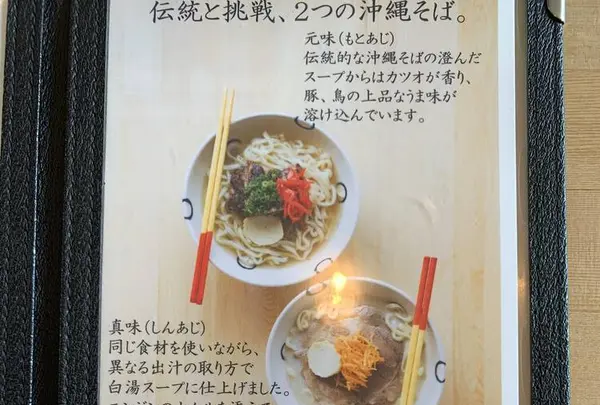 伝統と挑戦、2つの沖縄そば。
元味(もとあじ)
伝統的な沖縄そばの澄んだ
スープからはカツオが香り、
豚、鳥の上品なうま味が
溶け込んでいます。
真味(しんあじ)
同じ食材を使いながら、
異なる出汁の取り方で
白湯スープに仕上げました。